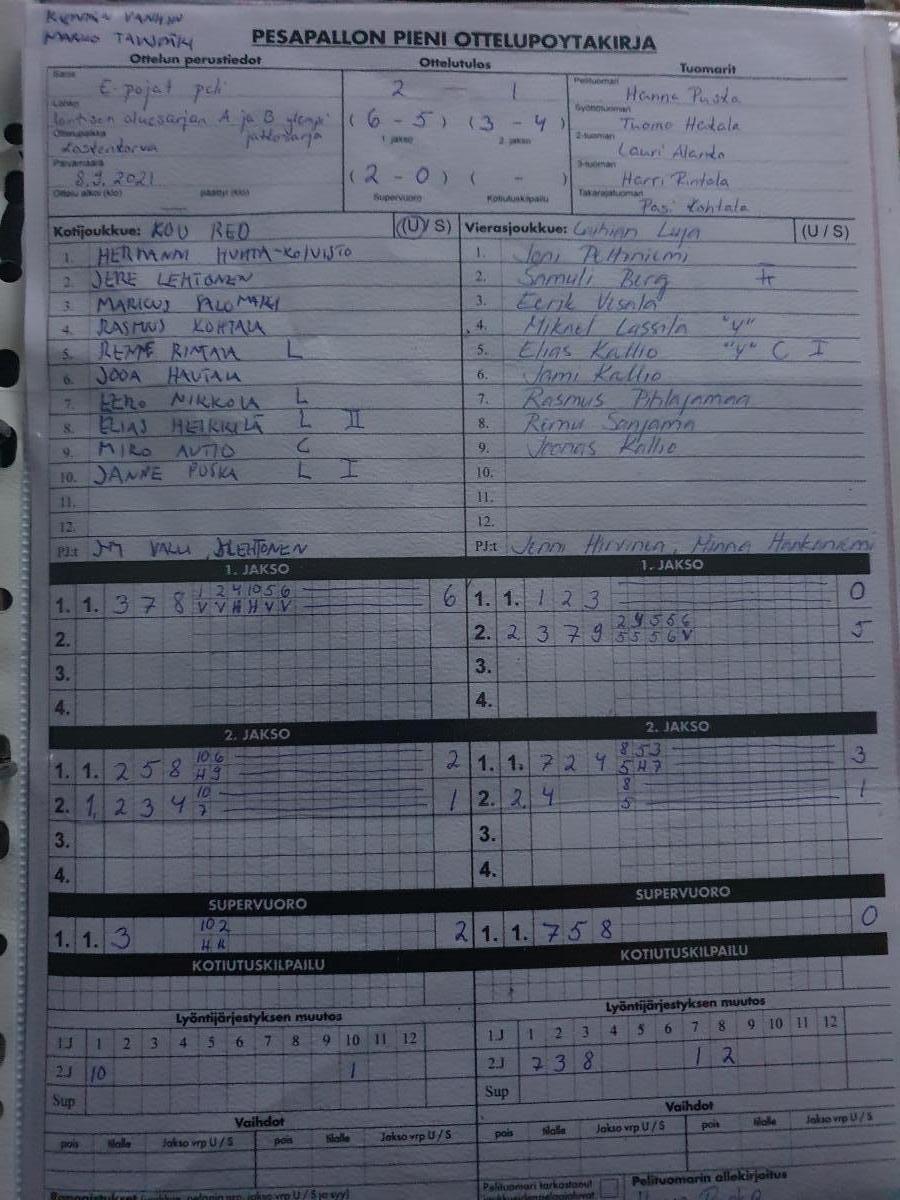 MARKO
PESÄPALLON PIENI OTTELUPÖYTÄKIRJA
Ottelun perustiedot Ottelutulos Tuomarit
Sarja E-pojat peli 2 - 1 Pelituomari Hanna Puska
Lohko aluesarjan A ja B ylempi jatkosarja (6 - 5) (3 - 4) Syöttötuomari Tuomo Hautala
1. jakso 2. jakso 2-tuomari Lauri Alanko
Ottelupaikka Lastenkorva
Päivämäärä 8.9.2021 (2 - 0) ( - ) 3-tuomari Harri Rintala
Ottelu alkoi (klo) päättyi (klo) Supervuoro Kotiutuskilpailu Takarajatuomari Pasi Kohtala
Kotijoukkue: KOU RED (U / S) Vierasjoukkue: Laihian Luja (U / S)
1. HERMANNI HUHTA-KOIVISTO 1. Joni Peltoniemi
2. JERE LEHTONEN 2. Samuli Berg
3. MARKUS PALOMÄKI 3. Eerik Visala
4. RASMUS KOHTALA 4. Mikael Lassila "y"
5. RINTALA L 5. Elias Kallio "y" C I
6. JOOA HAUTALA 6. Jami Kallio
7. EERO NIKKOLA L 7. Rasmus Pihlajamaa
8. ELIAS HEIKKILÄ L II 8. Rimu Sanjama
9. MIRO AUTIO C 9. Joonas Kallio
10. JANNE PUSKA L I 10.
11. 11.
12. 12.
PJ:t VALLI, J LEHTONEN PJ:t Jenni Hirvinen, Minna Hankaniemi
1. JAKSO 1. JAKSO
1. 1. 3 7 8 1 2 4 10 5 6 6 1. 1. 1 2 3 0
V V H H V V
2. 2. 2 3 7 9 2 4 5 5 6 5
5 5 5 6 V
3. 3.
4. 4.
2. JAKSO 2. JAKSO
1. 1. 2 5 8 10 6 2 1. 1. 7 2 4 8 5 3 3
H 9 5 H 7
2. 1. 2 3 4 10 1 2. 2. 4 8 1
7 5
3. 3.
4. 4.
SUPERVUORO SUPERVUORO
1. 1. 3 10 2 2 1. 1. 7 5 8 0
H
KOTIUTUSKILPAILU KOTIUTUSKILPAILU
Lyöntijärjestyksen muutos Lyöntijärjestyksen muutos
1.J 1 2 3 4 5 6 7 8 9 10 11 12 1.J 1 2 3 4 5 6 7 8 9 10 11 12
2.J 10 1 2.J 7 3 8 1 2
Sup Sup
Vaihdot Vaihdot
pois tilalle Jakso vrp U / S pois tilalle Jakso vrp U / S pois tilalle Jakso vrp U / S pois tilalle Jakso vrp U / S
Pelituomari tarkastanut Pelituomarin allekirjoitus